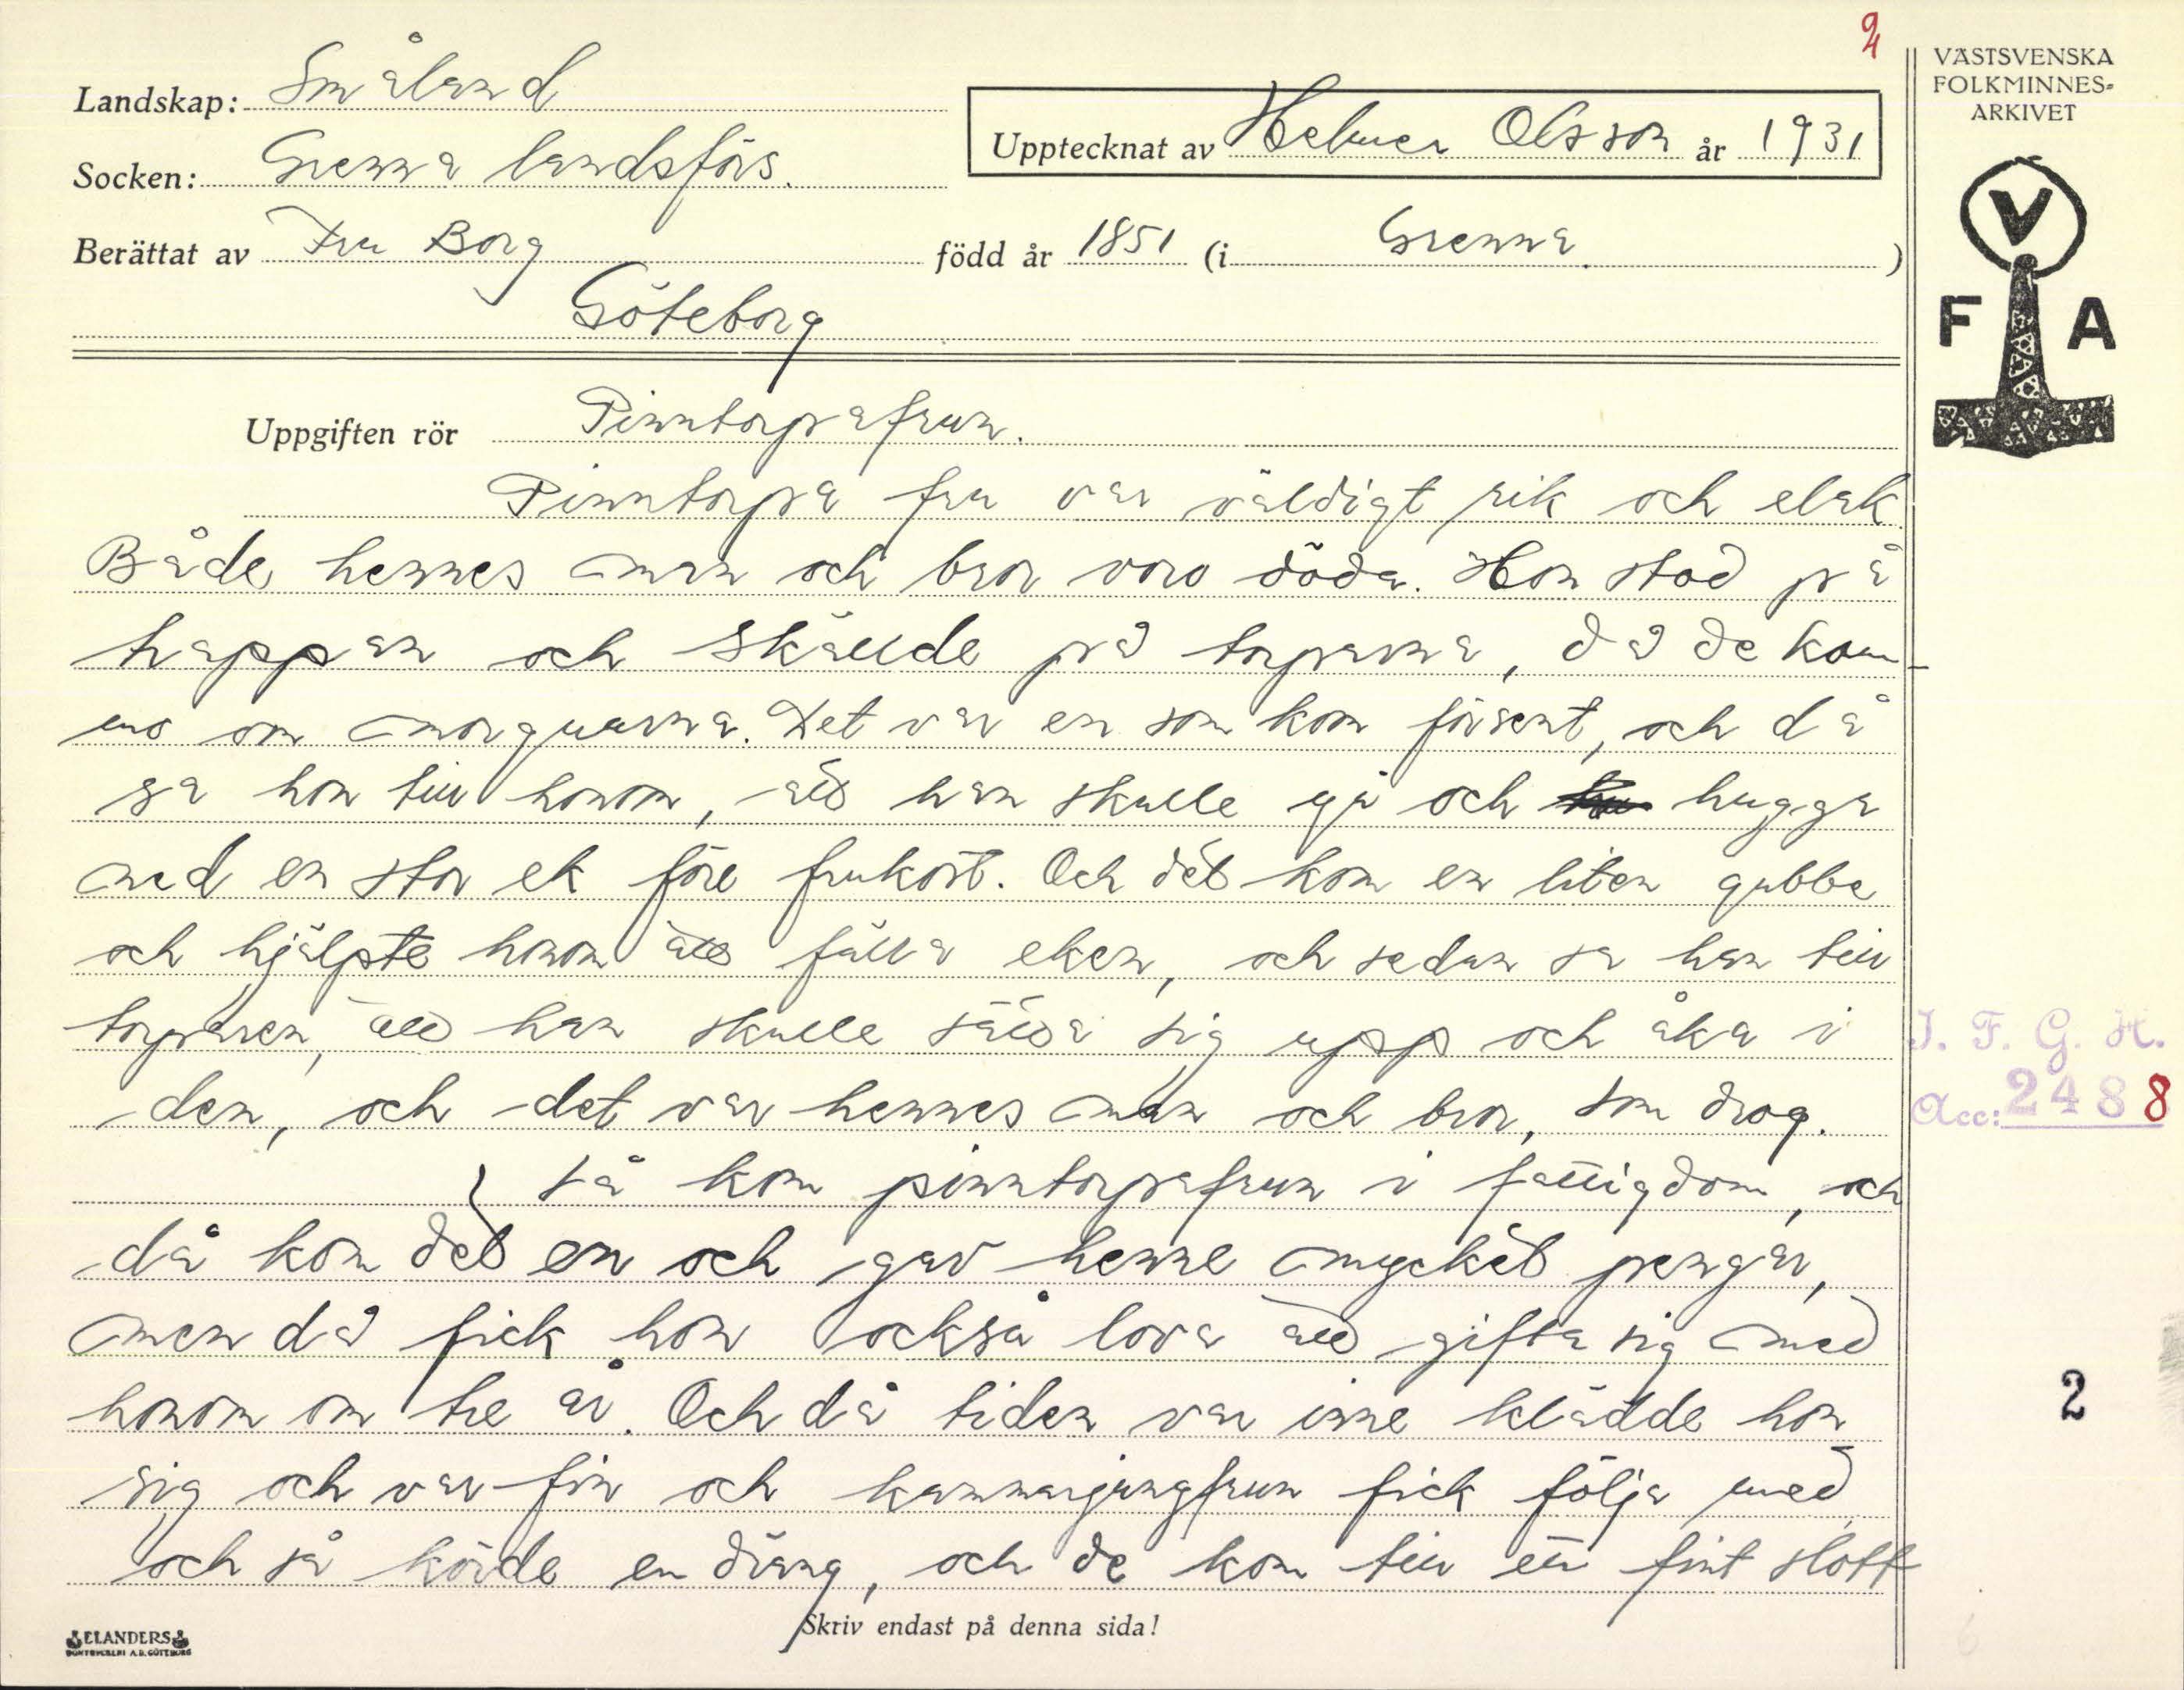 2
VÄSTSVENSKA
FOLKMINNES-
ARKIVET
Landskap: Småland
Socken: Grenna landsförs.
Upptecknat av Helmer Olsson år 1931
Berättat av Fru Borg född år 1851 (i Grenna.)
Göteborg
V
F A
Uppgiften rör Pinntorpafrun.
Pinntorpa fru var väldigt rik och elak
Både hennes man och bror voro döda. Hon stod på
trappan och skällde på torparna, då de kom-
mo om morgnarna. Det var en som kom försent, och då
sa hon till honom, att han skulle gå och hugga
ned en stor ek före frukost. Och det kom en liten gubbe
och hjälpte honom att fälla eken, och sedan sa han till
torparen, att han skulle sätta sig upp och åka i
den, och det var hennes man och bror, som drog.
Så kom pinntorpafrun i fattigdom, och
då kom det en och gav henne mycket pengar,
men då fick hon också lova att gifta sig med
honom om tre år. Och då tiden var inne klädde hon
sig och var fin och kammarjungfrun fick följa med,
och så körde en dräng, och de kom till ett fint slott
I. F. G. H.
Acc: 2488
2
Skriv endast på denna sida!
ELANDERS
BOKTRYCKERI A.B. GÖTEBORG